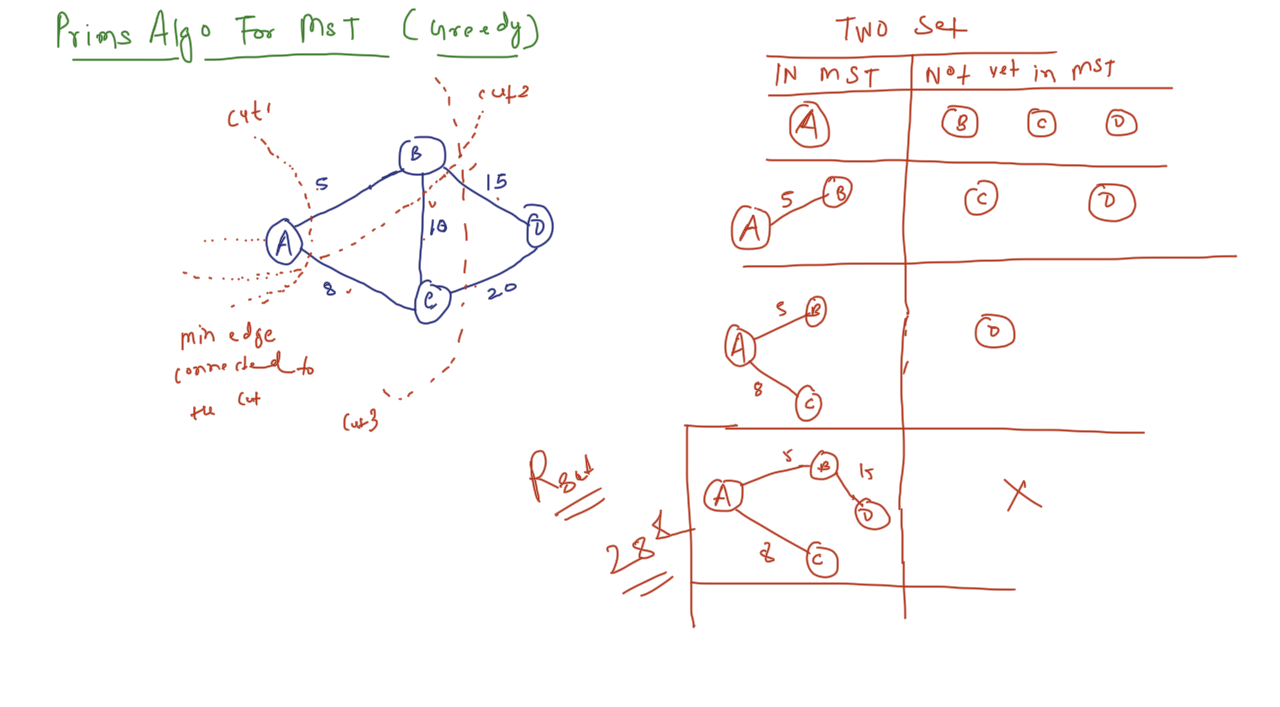 Prims Algo For MST (Greedy)
cut1
cut2
5
15
10
8
20
A
B
C
D
min edge
connected to
the cut
cut3
Two Set
IN MST
Not yet in MST
A
B C D
A 5 B
C D
A 5 B
8 C
D
A 5 B 15 D
8 C
X
28